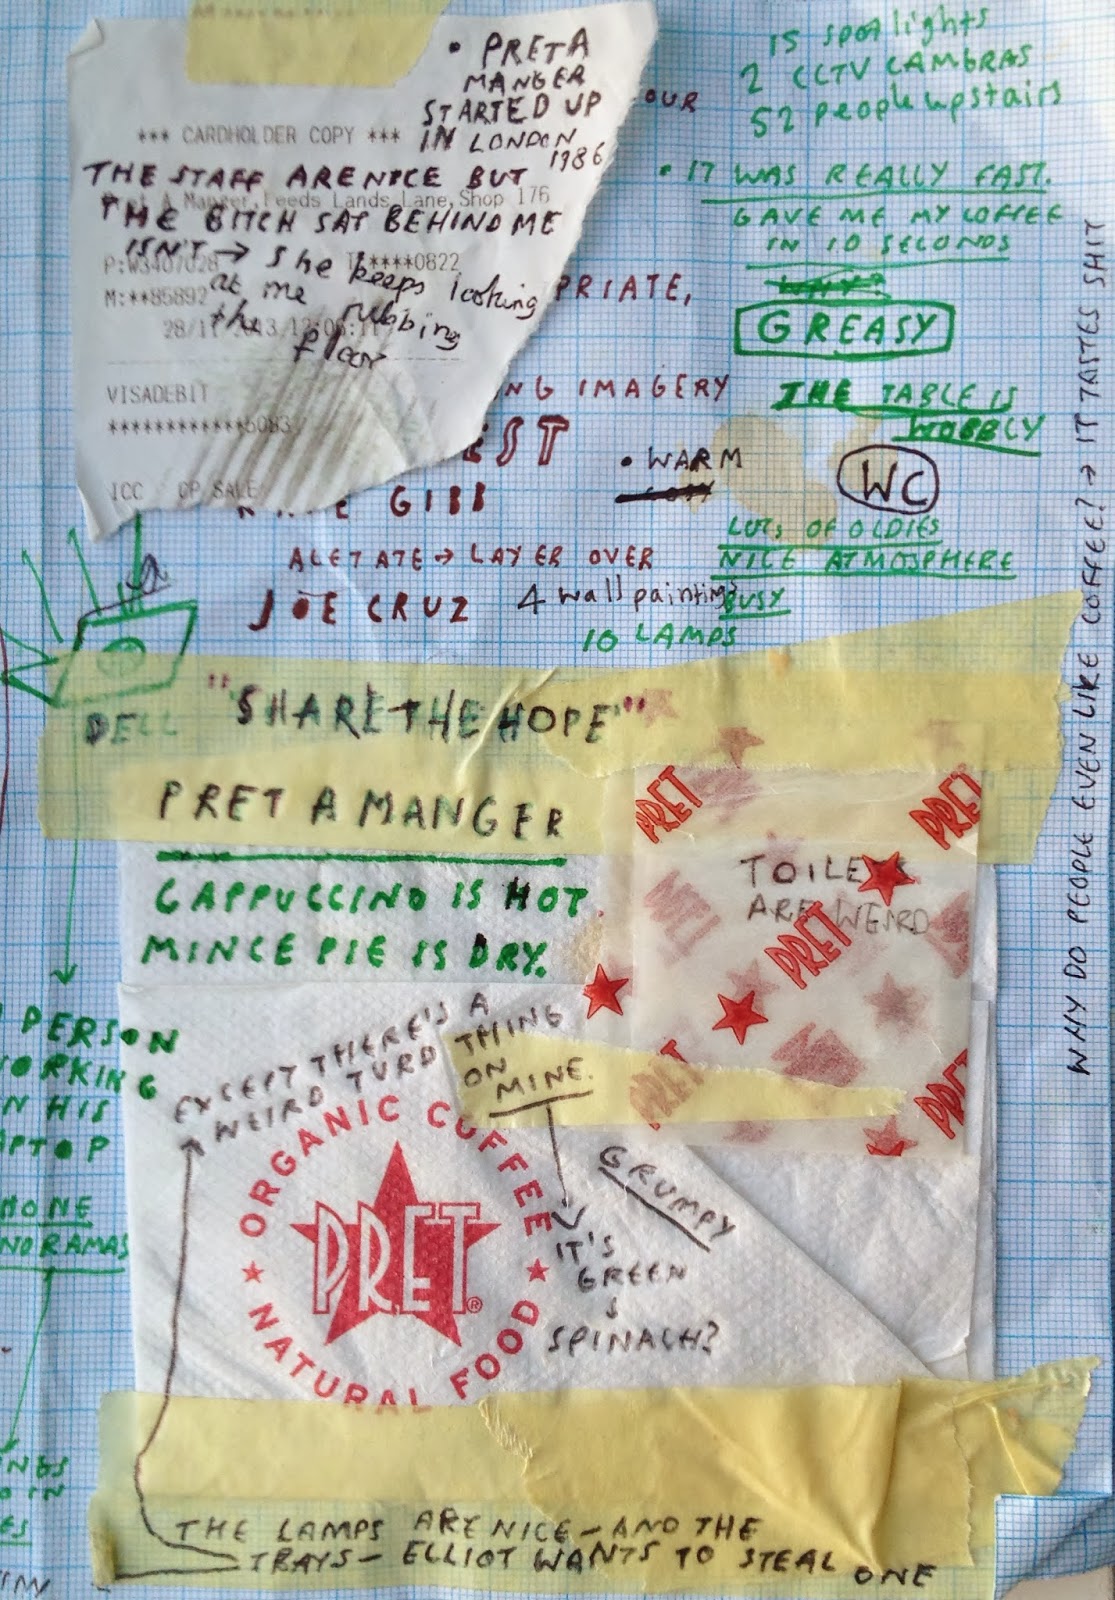 • PRET A
MANGER
STARTED UP
IN LONDON
1986
*** CARDHOLDER COPY ***
THE STAFF ARE NICE BUT
Manger, Leeds Lands Lane, Shop 176
THE BITCH SAT BEHIND ME
ISN'T → she keeps looking
at me rubbing
the floor
****0822
M:**85892
28/11
VISA DEBIT
ICC
SALE
OUR
PRIATE,
NG IMAGERY
EST
GIBB
ALETATE → LAYER OVER
JOE CRUZ
4 wall paintings
10 LAMPS
• WARM
15 spotlights
2 CCTV CAMERAS
52 people upstairs
• IT WAS REALLY FAST.
GAVE ME MY COFFEE
IN 10 SECONDS
GREASY
THE TABLE IS
WOBBLY
WC
LOTS OF OLDIES
NICE ATMOSPHERE
BUSY
WHY DO PEOPLE EVEN LIKE COFFEE? → IT TASTES SHIT
DELL
"SHARE THE HOPE"
PRET A MANGER
CAPPUCCINO IS HOT
MINCE PIE IS DRY.
PRET
PRET
TOILETS
ARE WEIRD
PRET
PRET
PRET
PERSON
ORKING
N HIS
APTOP
HONE
NORAMAS
EXCEPT THERE'S A
WEIRD TURD THING
ON
MINE.
IT'S
GREEN
&
SPINACH?
GRUMPY
ORGANIC COFFEE
PRET®
NATURAL FOOD
THE LAMPS ARE NICE - AND THE
TRAYS - ELLIOT WANTS TO STEAL ONE